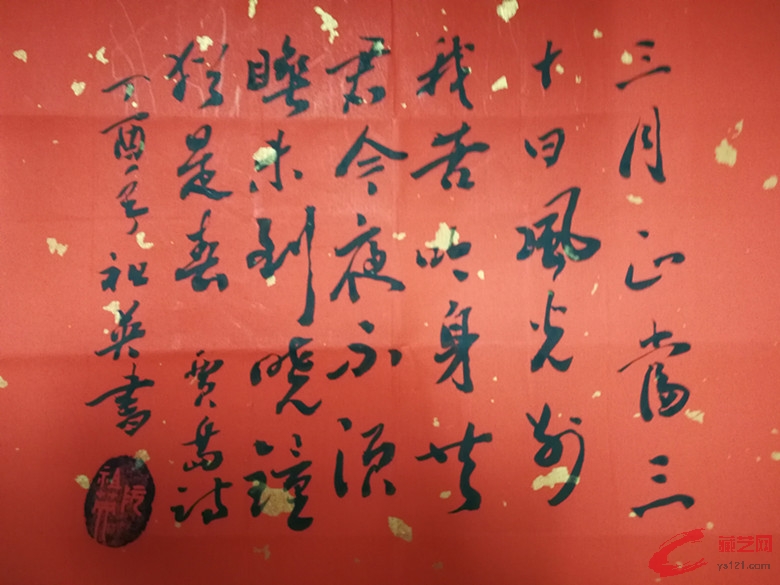 三月正當三
十日風光別
我苦吟身共
君今夜不須
睡未到曉鐘
猶是春 賈島詩
丁酉年 英書
藏艺网
ys121.com